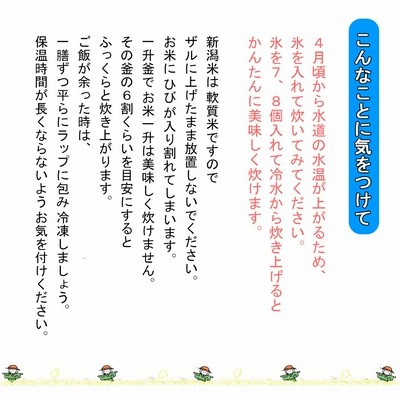 こんなことに気をつけて
４月頃から水道の水温が上がるため、
氷を入れて炊いてみてください。
氷を７、８個入れて冷水から炊き上げると
かんたんに美味しく炊けます。
新潟米は軟質米ですので
ザルに上げたまま放置しないでください。
お米にひびが入り割れてしまいます。
一升釜でお米一升は美味しく炊けません。
その釜の６割くらいを目安にすると
ふっくらと炊き上がります。
ご飯が余った時は、
一膳ずつ平らにラップに包み冷凍しましょう。
保温時間が長くならないようお気を付けください。